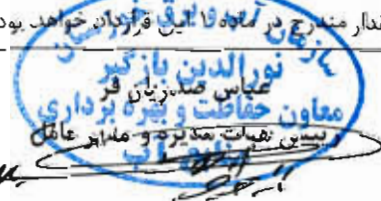 مقدار مندرج در ماده ۱ این قرارداد خواهد بود
سازمان آب و برق خوزستان
نورالدین بازگیر
عباس صدریان فر
معاون حفاظت و بهره برداری
رییس هیات مدیره و مدیر عامل